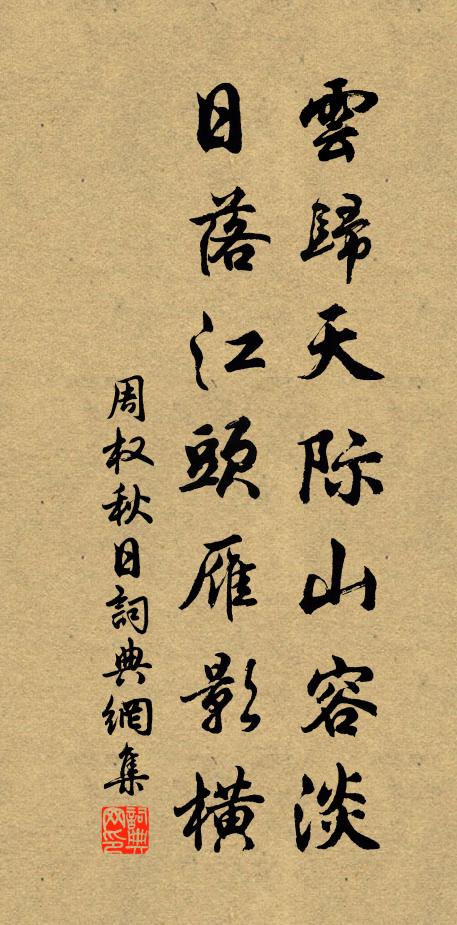 雲歸天际山容淡
日落江頭雁影橫
周权秋日詞典網集
詞典
网印